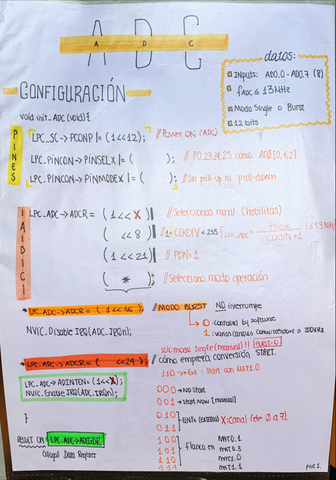 ADC
A D C
datos:
Inputs: AD0.0 - AD0.7 (8)
fADC ≤ 13MHz
Modo Single o Burst
12 bits
CONFIGURACIÓN
void init_ADC (void) {
PINES
LPC_SC -> PCONP |= (1<<12); // Power ON (ADC)
LPC_PINCON -> PINSEL1 |= ( ); // P0.23,24,25 como AD0[0,1,2]
LPC_PINCON -> PINMODE1 |= ( ); // Sin pull-up ni pull-down
LPC_ADC -> ADCR = (1<<X) | // Selecciona canal (habilitas)
( <<8) | // 1 < CLKDIV < 255
(1<<21) // PDN=1
( * ); // Selecciona modo operación
LPC_ADC -> ADCR |= (1<<16); // MODO BURST NO interrumpe
NVIC_DisableIRQ(ADC_IRQn);
0: control by software
solo modo single (manual)!! BURST=0
LPC_ADC -> ADCR |= ( <<24); // cómo empieza conversión START.
110 -> Ej: Start con MAT1.0
LPC_ADC -> ADINTEN = (1<<X);
NVIC_EnableIRQ(ADC_IRQn);
000 -> NO Start
001 -> Start now [manual]
010
011
}
100
101
110
111
Flanco en
MAT0.1
MAT0.3
MAT1.0
MAT1.1
RESULT ON LPC_ADC->ADGDR
Global Data Register